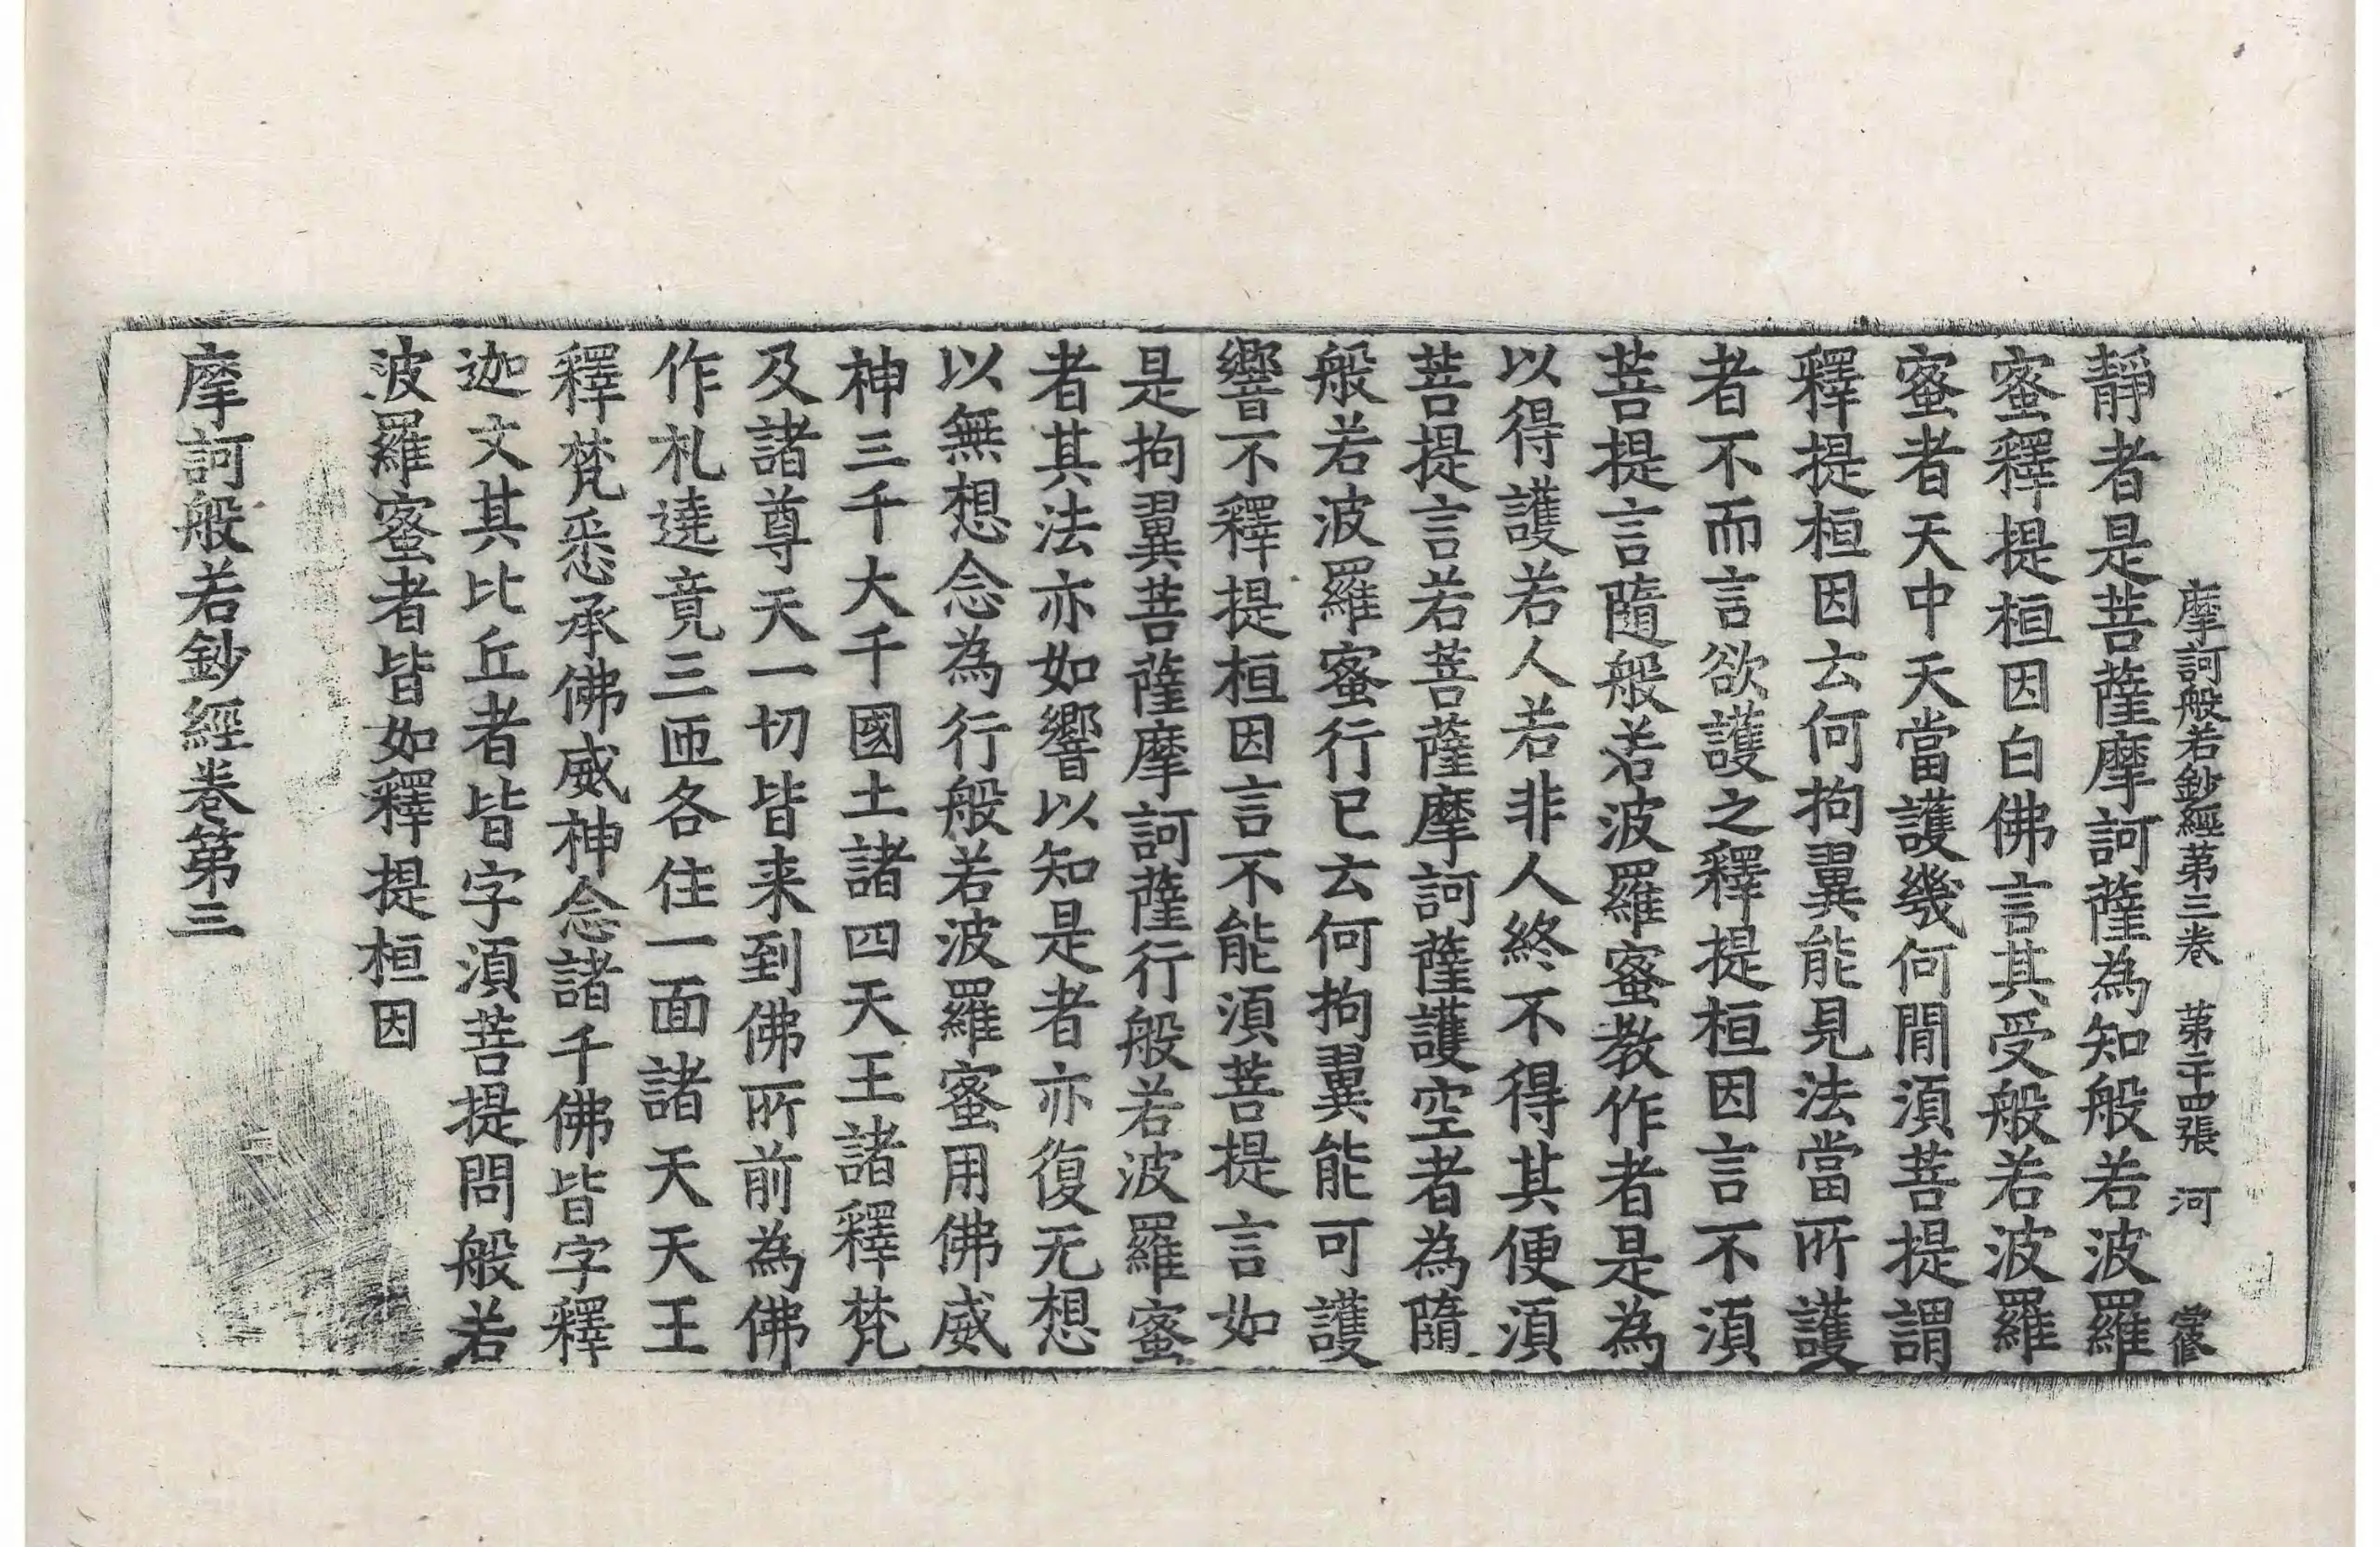 摩訶般若鈔經第三卷　第二十四張　河
靜者是菩薩摩訶薩為知般若波羅
蜜釋提桓因白佛言其受般若波羅
蜜者天中天當護幾何閒須菩提謂
釋提桓因云何拘翼能見法當所護
者不而言欲護之釋提桓因言不須
菩提言隨般若波羅蜜教作者是為
以得護若人若非人終不得其便須
菩提言若菩薩摩訶薩護空者為隨
般若波羅蜜行已云何拘翼能可護
響不釋提桓因言不能須菩提言如
是拘翼菩薩摩訶薩行般若波羅蜜
者其法亦如響以知是者亦復无想
以無想念為行般若波羅蜜用佛威
神三千大千國土諸四天王諸釋梵
及諸尊天一切皆来到佛所前為佛
作札遶竟三匝各住一面諸天天王
釋梵悉承佛威神念諸千佛皆字釋
迦文其比丘者皆字須菩提問般若
波羅蜜者皆如釋提桓因
摩訶般若鈔經卷第三